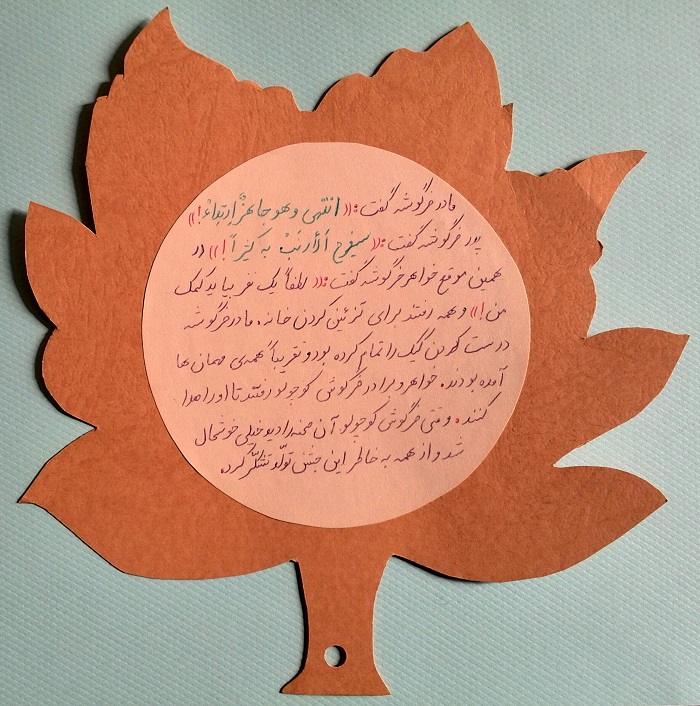 مادر خرگوشه گفت:«انْتَهی و هو جاهزٌ اِبتداء!»
پدر خرگوشه گفت:«سیفرح اَلأرنَبْ به کثیراً!» در
همین موقع خواهر خرگوشه گفت:«لطفاً یک نفر بیاید کمک
من!» و همه رفتند برای تزئین کردن خانه. مادر خرگوشه
درست کردن کیک را تمام کرده بود و تقریباً همه‌ی مهمان ها
آمده بودند. خواهر و برادر خرگوشی کوچولو رفتند تا او را صدا
کنند. وقتی خرگوشی کوچولو آن صحنه را دید خیلی خوشحال
شد و از همه به خاطر این جشن تولّد تشکّر کرد.